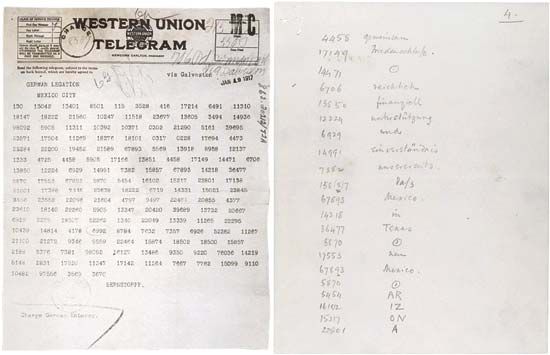 WESTERN UNION
TELEGRAM
NEWCOMB CARLTON, PRESIDENT
Send the following telegram, subject to the terms
on back hereof, which are hereby agreed to
via Galveston
JAN 19 1917
GERMAN LEGATION
MEXICO CITY
130 13042 13401 8501 115 3528 416 17214 6491 11310
18147 18222 21560 10247 11518 23677 13605 3494 14936
98092 5905 11311 10392 10371 0302 21290 5161 39695
23571 17504 11269 18276 18101 0317 0228 17694 4473
22284 22200 19452 21589 67893 5569 13918 8958 12137
1333 4725 4458 5905 17166 13851 4458 17149 14471 6706
13850 12224 6929 14991 7382 15857 67893 14218 36477
5870 17553 67893 5870 5454 16102 15217 22801 17138
21001 17388 7446 23638 18222 6719 14331 15021 23845
3156 23552 22096 21604 4797 9497 22464 20855 4377
23610 18140 22260 5905 13347 20420 39689 13732 20667
6929 5275 18507 52262 1340 22049 13339 11265 22295
10439 14814 4178 6992 8784 7632 7357 6926 52262 11267
21100 21272 9346 9559 22464 15874 18502 18500 15857
2188 5376 7381 98092 16127 13486 9350 9220 76036 14219
5144 2831 17920 11347 17142 11264 7667 7762 15099 9110
10482 97556 3569 3670
BERNSTORFF.
Charge German Embassy.
4.
4458 gemeinsam
17149 Friedenschluß.
14471 ⊙
6706 reichlich
13850 finanziell
12224 unterstützung
6929 und
14991 einverständnis
7382 unsererseits.
15857 Daß
67893 Mexico.
14218 in
36477 Texas
5870 ⊙
17553 neu
67893 Mexico.
5870 ⊙
5454 AR
16102 IZ
15217 ON
22801 A